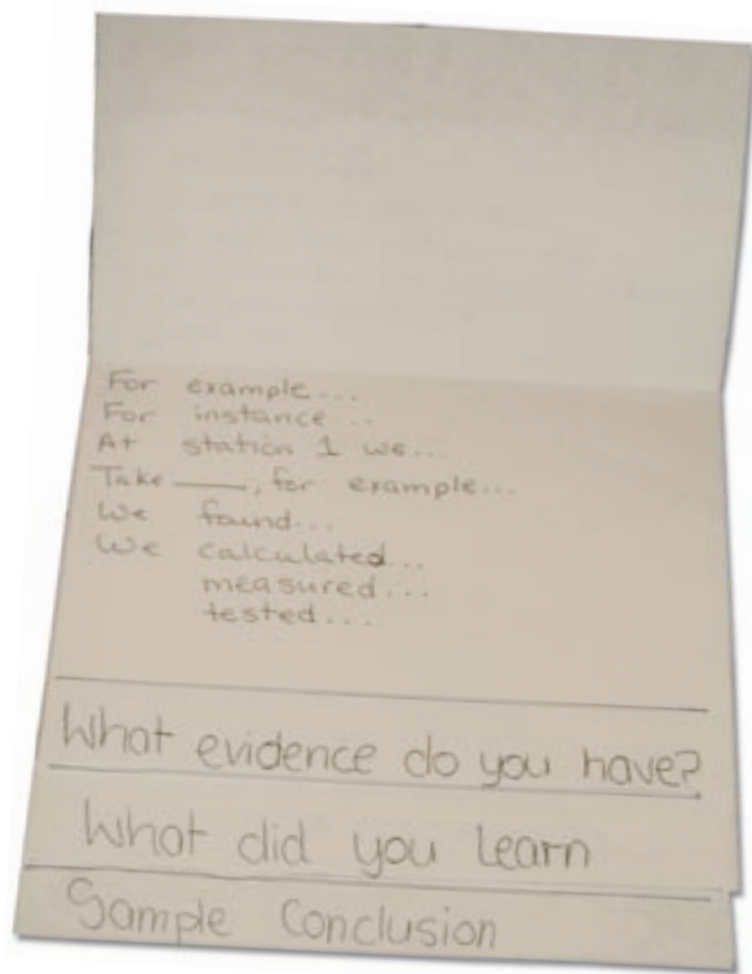 For example...
For instance...
At station 1 we...
Take ____, for example...
We found...
We calculated...
measured...
tested...
What evidence do you have?
What did you learn
Sample Conclusion